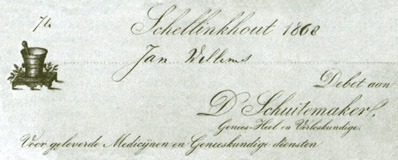 7b.
Schellinkhout 1868
Jan Willems
Debet aan
D. Schuitemaker,
Genees-Heel en Verloskundige.
Voor geleverde Medicijnen en Geneeskundige diensten.